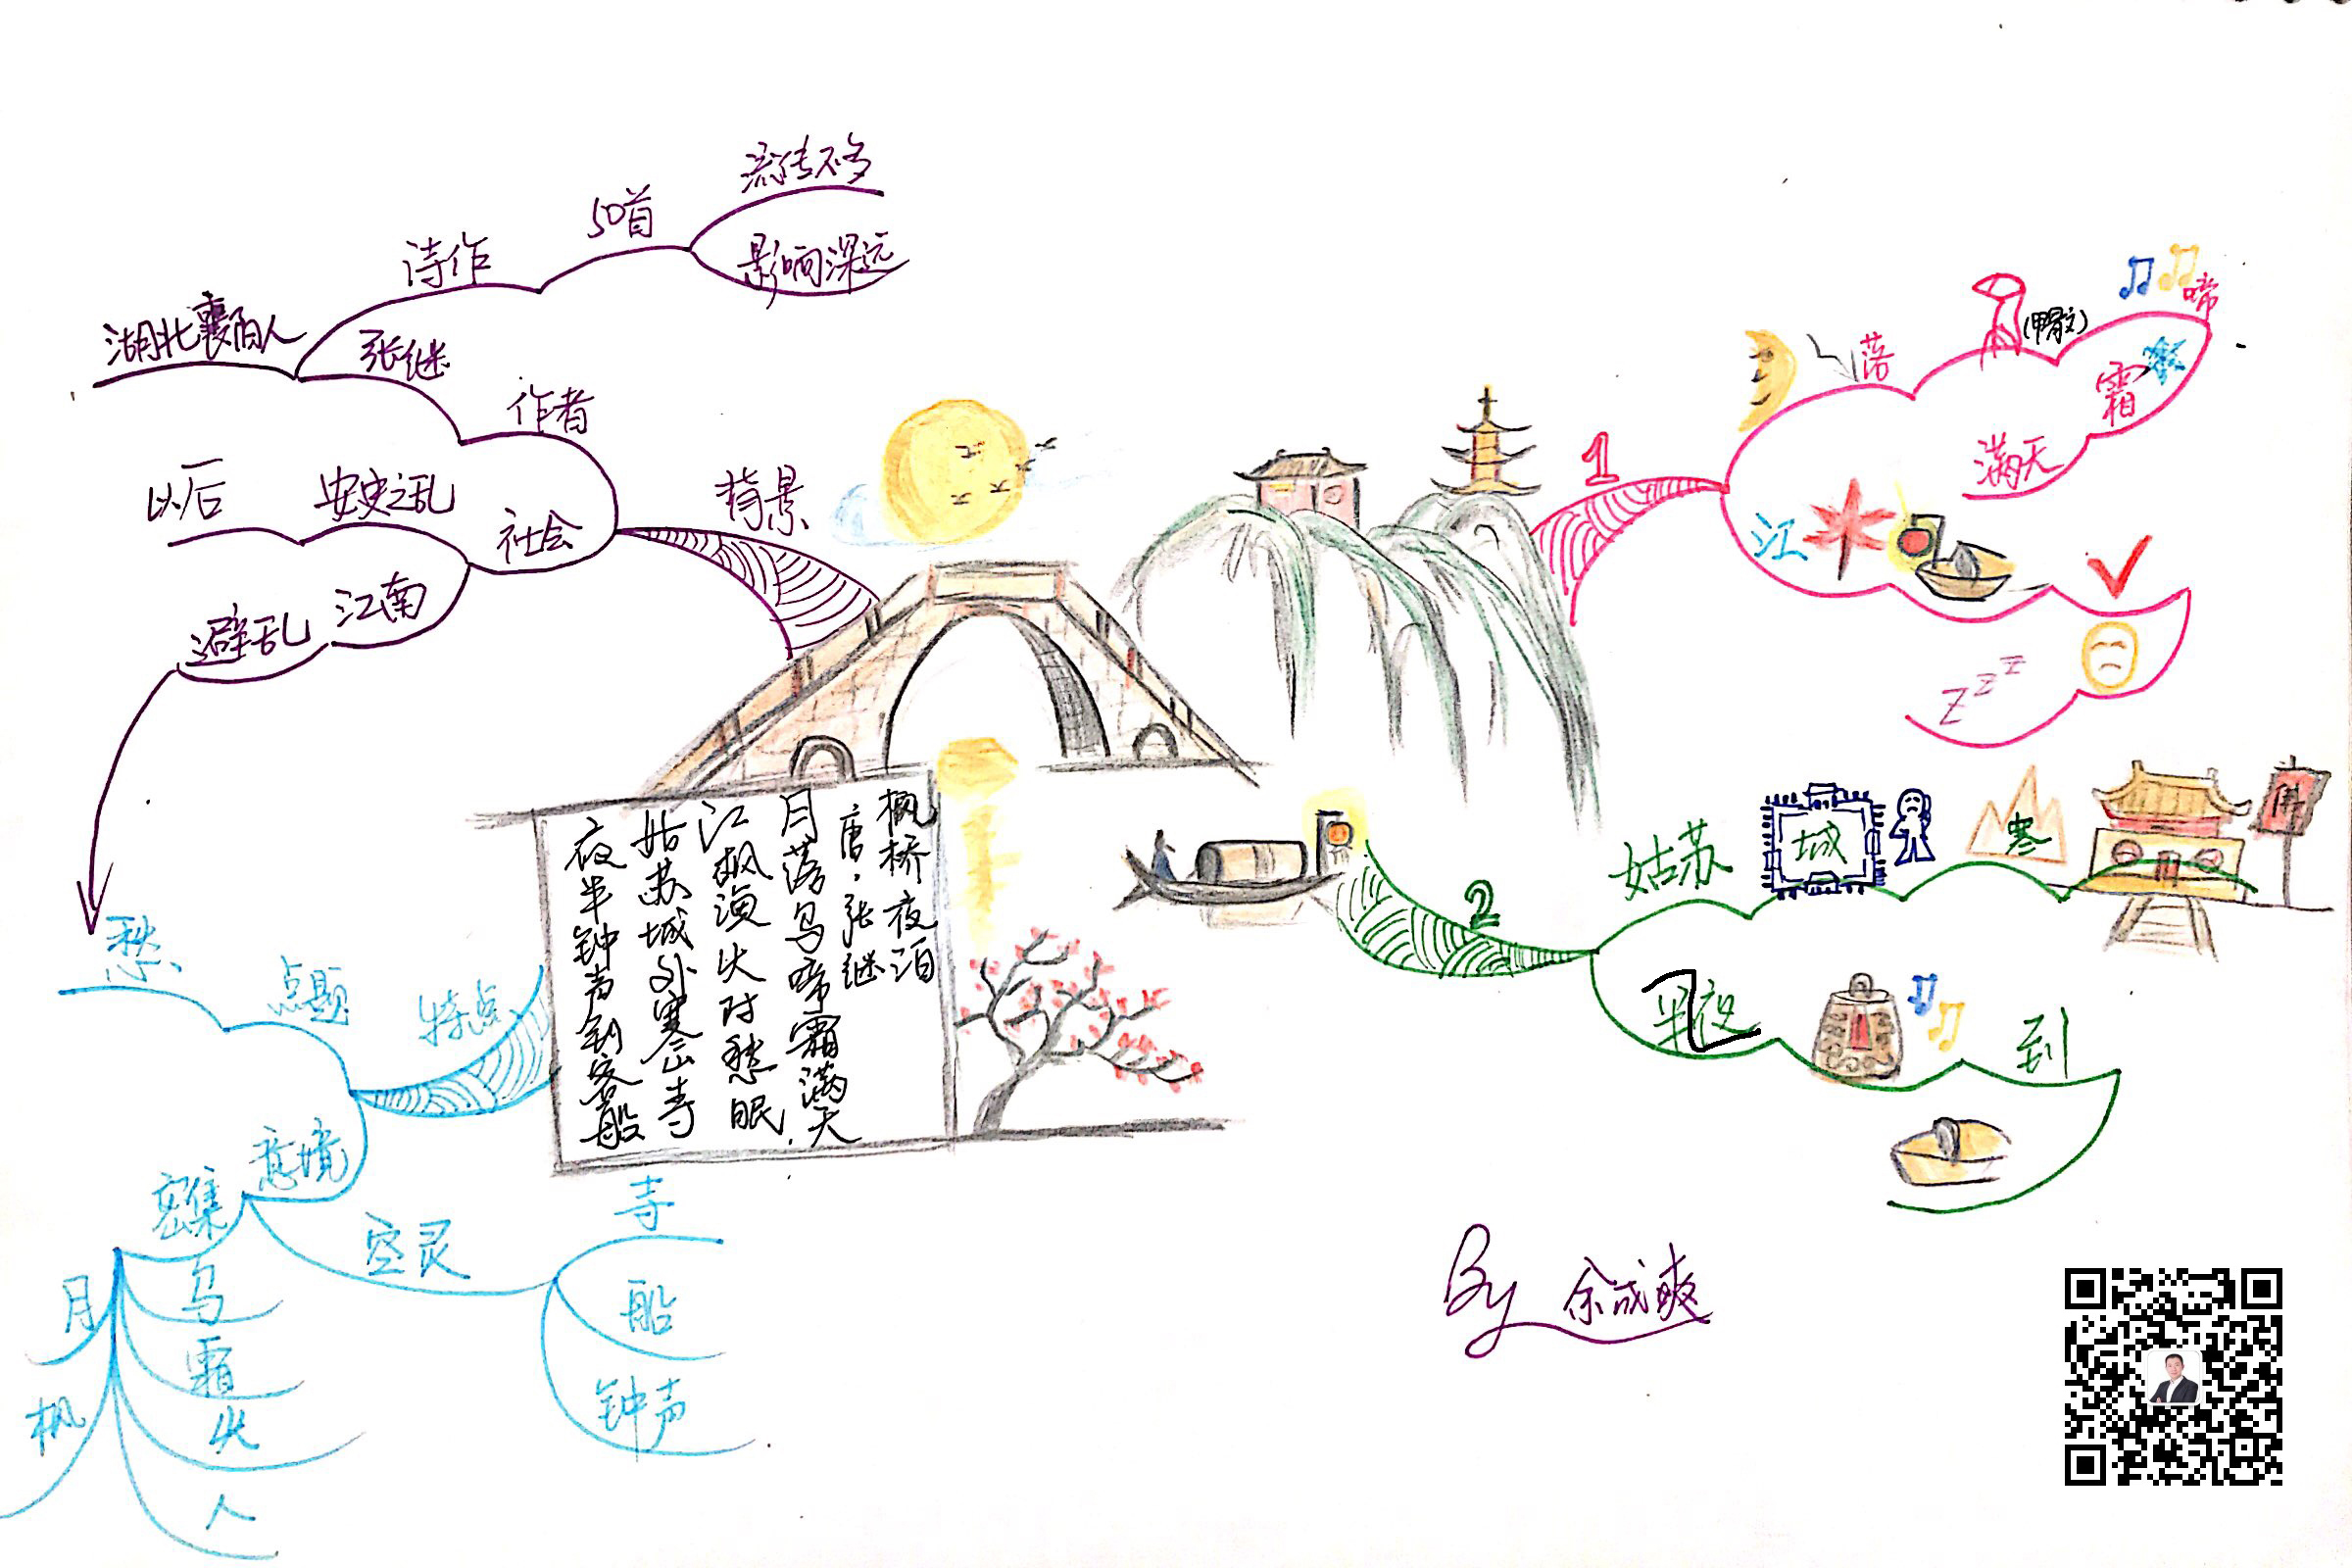 流传不多
50首
影响深远
诗作
湖北襄阳人
张继
作者
背景
以后
安史之乱
社会
江南
避乱
1
落
啼
霜
满天
江
zzz
枫桥夜泊
唐·张继
月落乌啼霜满天
江枫渔火对愁眠
姑苏城外寒山寺
夜半钟声到客船
2
姑苏
城
寒
佛
半夜
到
愁
点题
特点
意境
密集
空灵
寺
船
钟声
月
乌
霜
枫
火
人
By 余成爽